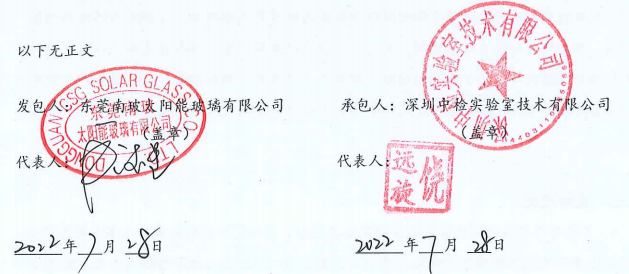 以下无正文
发包人：东莞南玻太阳能玻璃有限公司
（盖章）
代表人：
2022年7月28日
DONGGUAN CSG SOLAR GLASS CO., LTD
东莞南玻
太阳能玻璃有限公司
承包人：深圳中检实验室技术有限公司
（盖章）
代表人：
2022年7月28日
深圳中检实验室技术有限公司
饶远旋